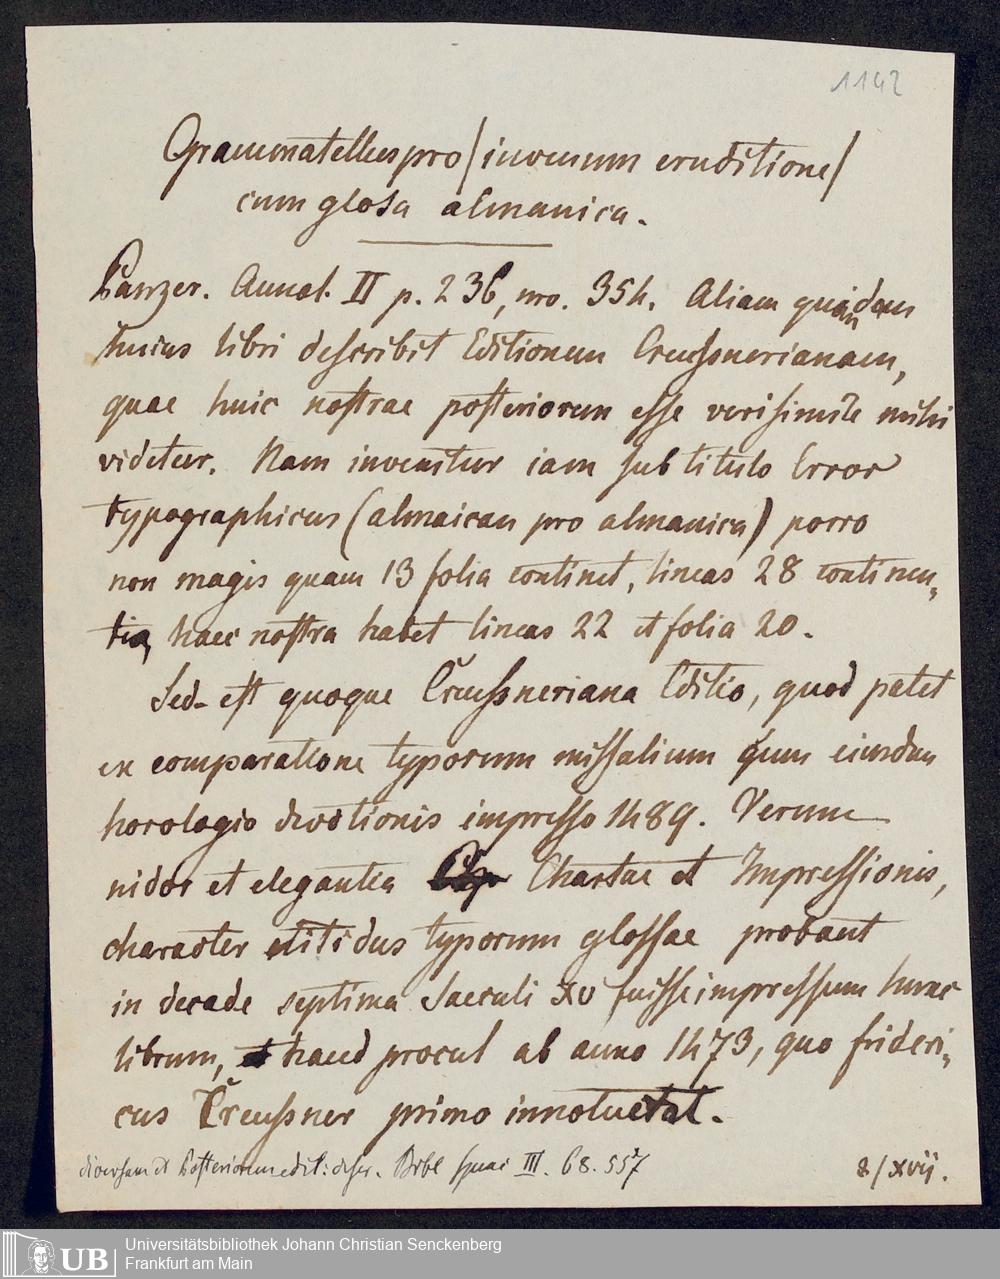 1142
Grammatellus pro / iuvenum eruditione /
cum glosa almanica.
Panzer. Annal. II p. 236, nro. 354. Aliam quandam
huius libri describit Editionem Creußnerianam,
quae huic nostrae posteriorem esse verisimile mihi
videtur. Nam invenitur iam sub titulo Error
typographicus (almaican pro almanica) porro
non magis quam 13 folia continet, lineas 28 continen,
tia, haec nostra habet lineas 22 et folia 20.
Sed est quoque Creußneriana Editio, quod patet
ex comparatione typorum missalium quum eiusdem
horologio devotionis impresso 1489. Verum
nidor et elegantia Chartae et Impressionis,
character typorum glossae probant
in decade septima Saeculi XV fuisse impressum hunc
librum, haud procul ab anno 1473, quo frideri,
cus Creußner primo innotuerat.
diversam et Posteriorem edit: descr. Bibl III. 68. 557
8/xvij.
UB Universitätsbibliothek Johann Christian Senckenberg
Frankfurt am Main